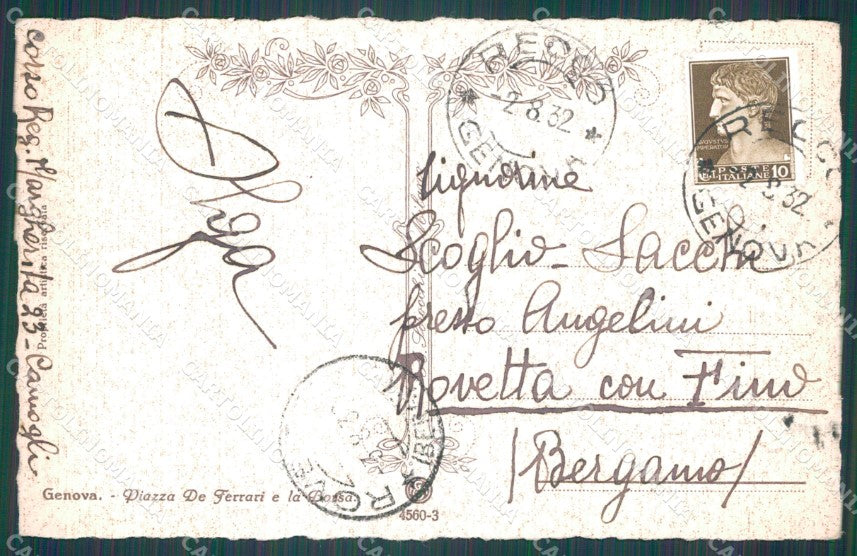 corso Reg. Margherita 23 - Camogli
Proprietà artistica riservata
Olga
RECCO
2.8.32
GENOVA
AVGVSTVS
IMPERATOR
POSTE
ITALIANE
10
RECCO
2.8.32
GENOVA
Signorine
Scoglio - Sacchi
presso Angelini
Rovetta con Fino
(Bergamo)
ROVE
Genova. - Piazza De Ferrari e la Borsa.
4560-3
CARTOLINOMANIA